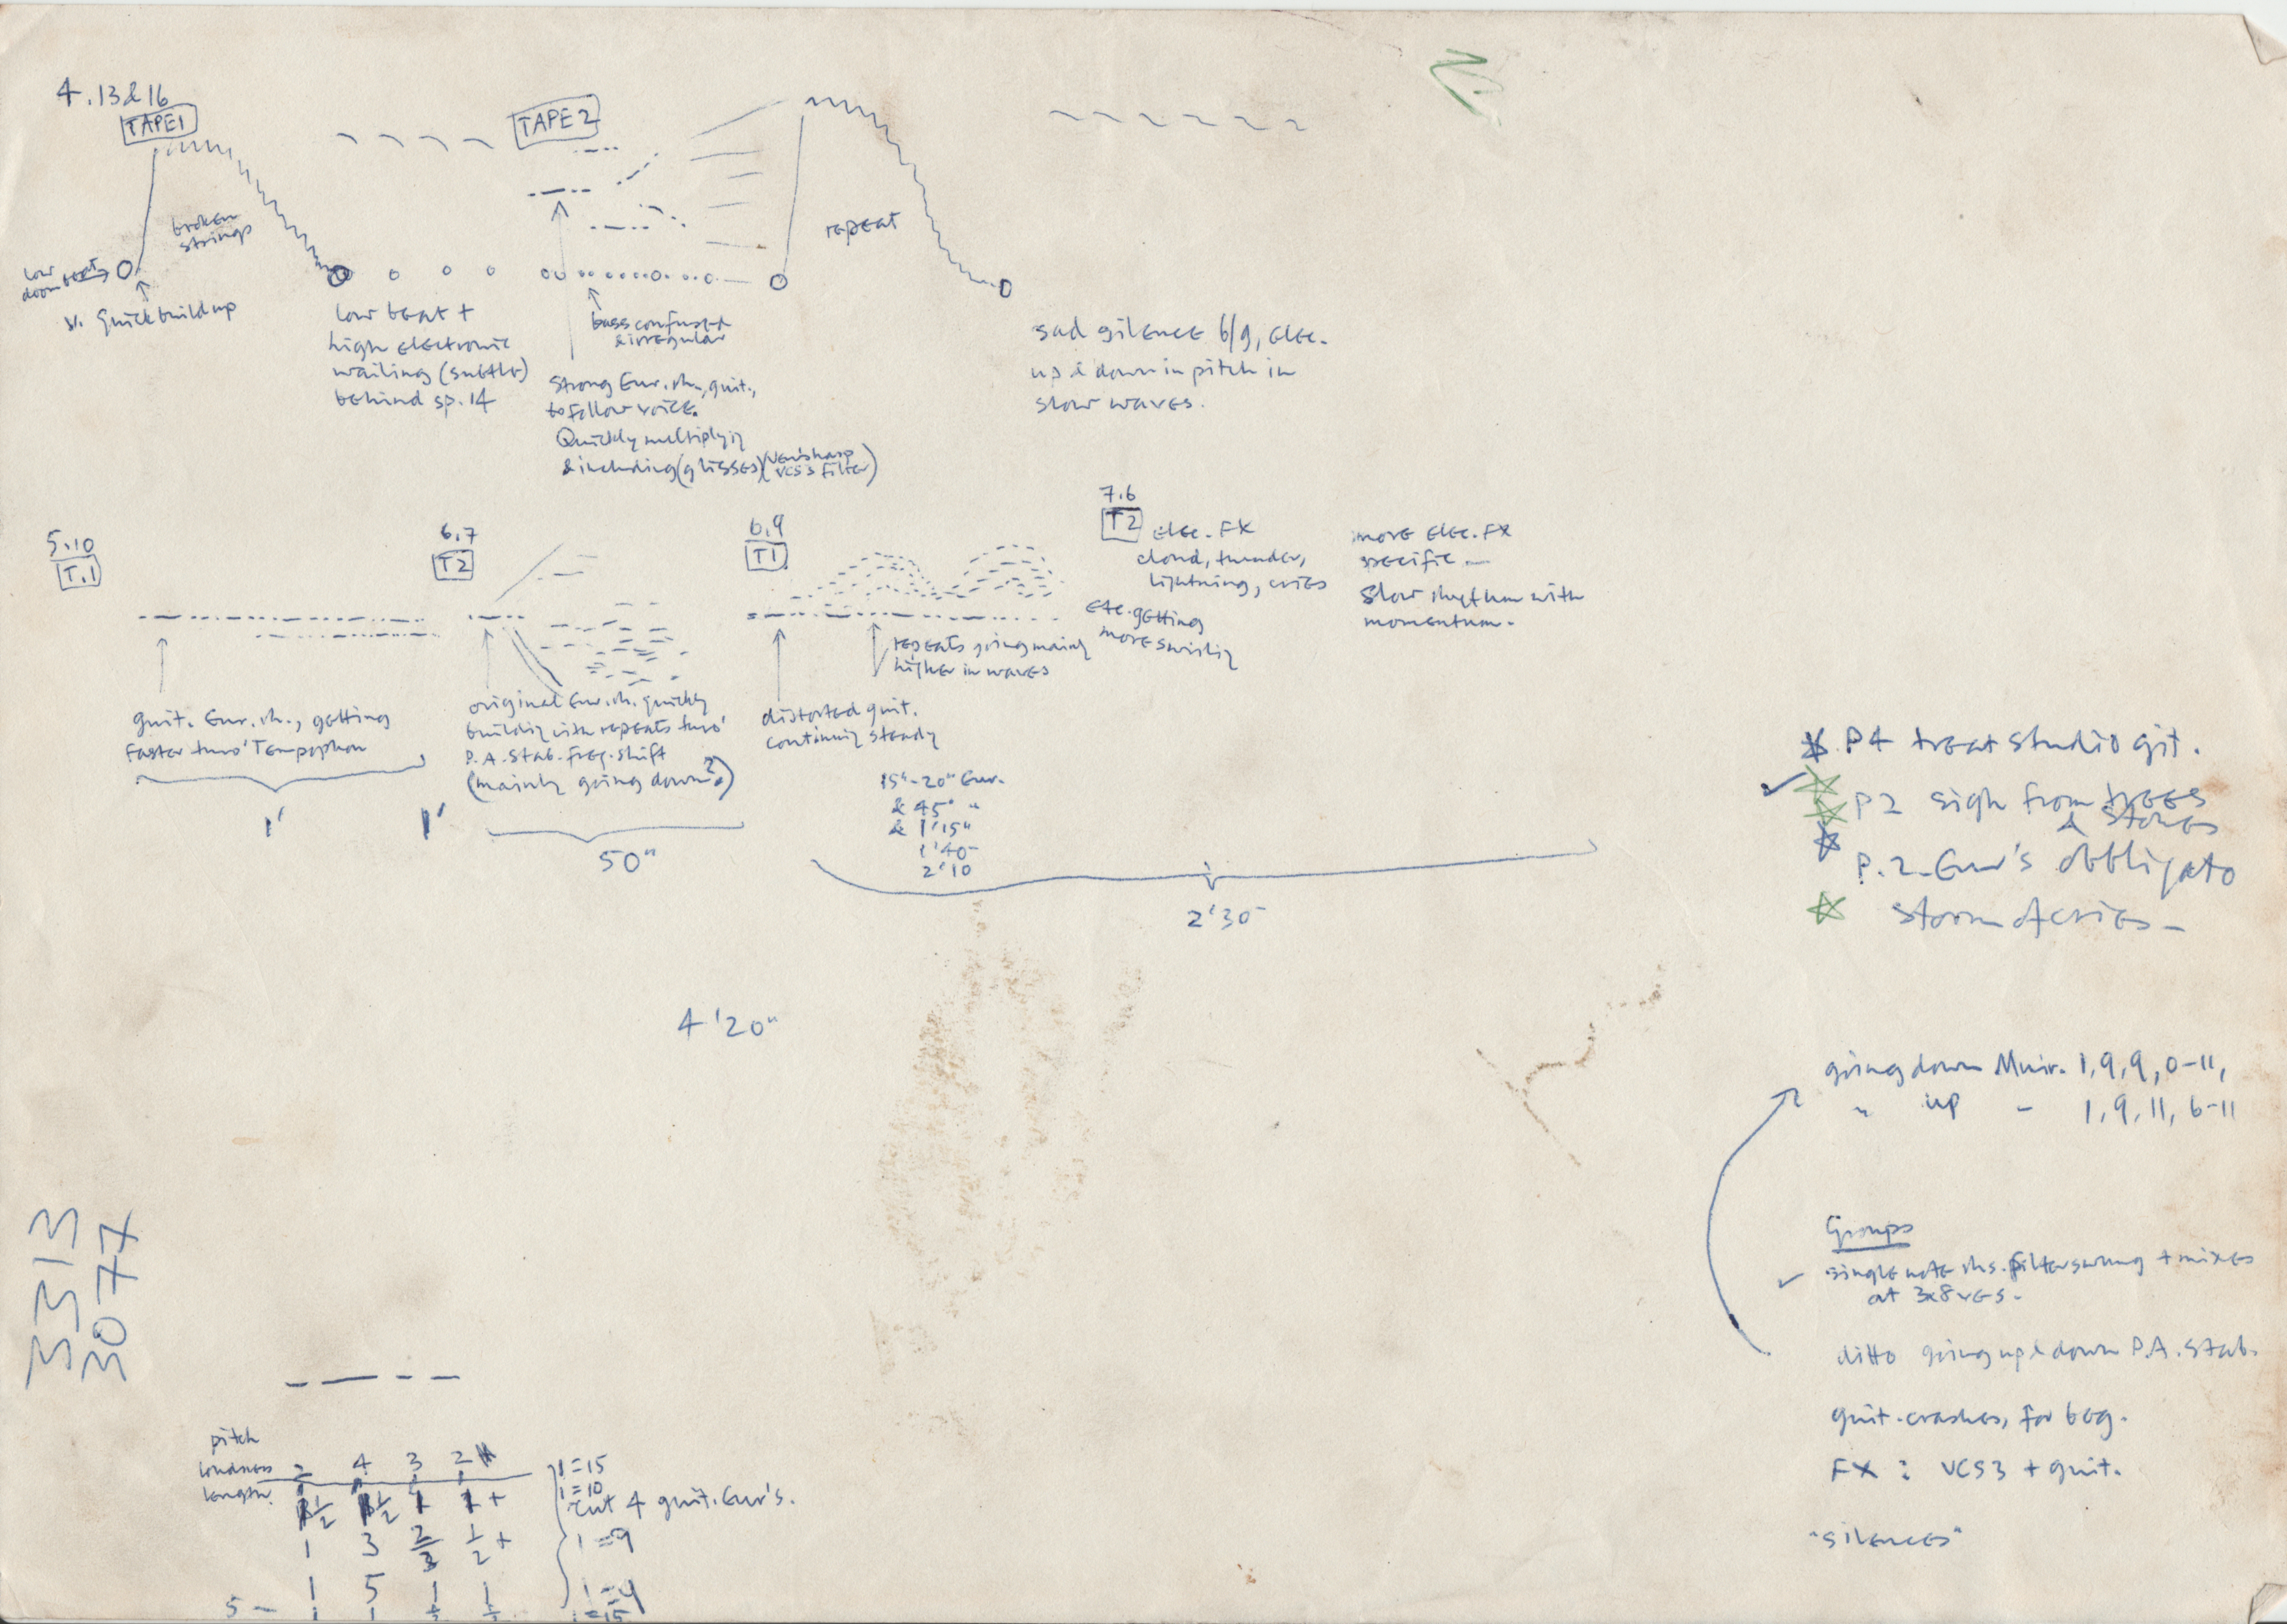 4.13&16
TAPE1
TAPE 2
broken
strings
repeat
low
doom beat
v. quick build up
low beat +
high electronic
wailing (subtle)
behind sp. 14
bass confused
& irregular
strong Eur. rh., guit.,
to follow voice.
Quickly multiplying
& including (glisses)
VCS3 filter)
sad silence b/g, elec.
up & down in pitch in
slow waves.
5.10
T.1
6.7
T2
6.9
T1
7.6
T2
elec. FX
cloud, thunder,
lightning, cries
etc. getting
more swirling
more elec. FX
specific —
slow rhythm with
momentum.
guit. Eur. rh., getting
faster thro' Tempophon
1'
1'
original Eur. rh. quickly
building with repeats thro'
P.A. Stab. freq. shift
(mainly going down?)
50"
distorted guit.
continuing steady
repeats going mainly
higher in waves
15"-20" Eur.
& 45" "
& 1'15"
1'40
2'10
2'30
4'20"
P4 treat studio git.
P2 sigh from trees
& stones
P.2. Eur's obbligato
storm & cries –
going down Muir. 1,9,9,0-11,
" up " 1,9,11,6-11
Groups
single note rhs. filter swung + mixes
at 3x8ves.
ditto going up & down P.A. Stab.
guit. crashes, for beg.
FX : VCS3 + guit.
"silences"
3313
3077
pitch
loudness
length
2 4 3 2
1½ 1½ 1 1+
1 3 2/3 ½+
1 5 1 1
5 –
1=15
1=10
cut 4 guit. Eur's.
1=9
1=15